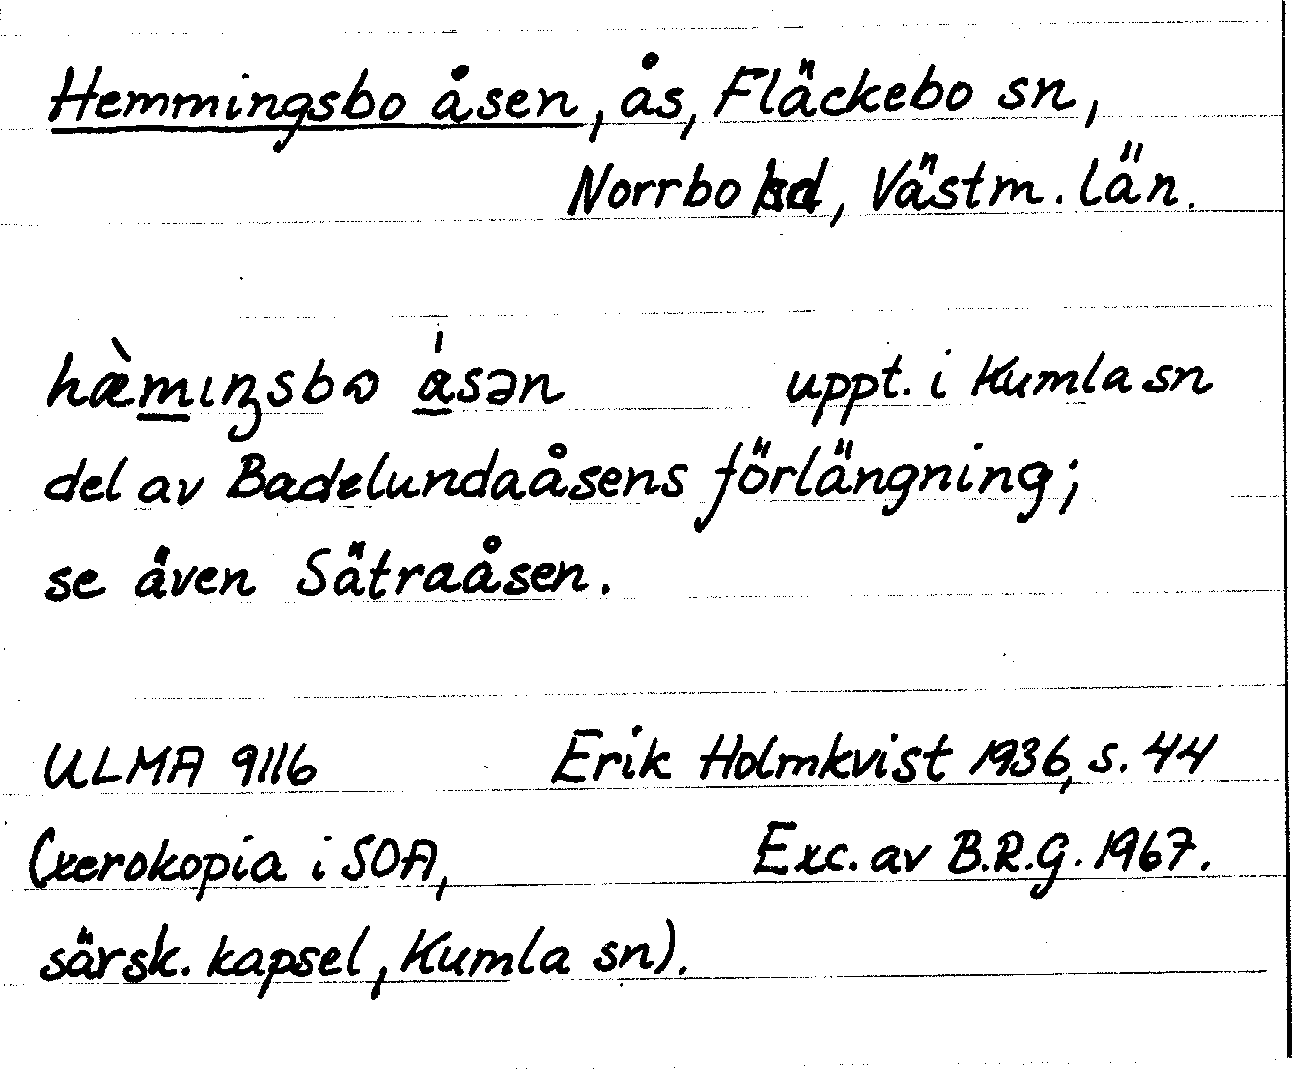 Hemmingsbo åsen, ås, Fläckebo sn,
Norrbo hd, Västm. län.
hæ̀m̲ıŋsbɷ a̲̍sən uppt. i Kumla sn
del av Badelundaåsens förlängning;
se även Sätraåsen.
ULMA 9116 Erik Holmkvist 1936, s. 44
(xerokopia i SOA, Exc. av B.R.G. 1967.
särsk. kapsel, Kumla sn).